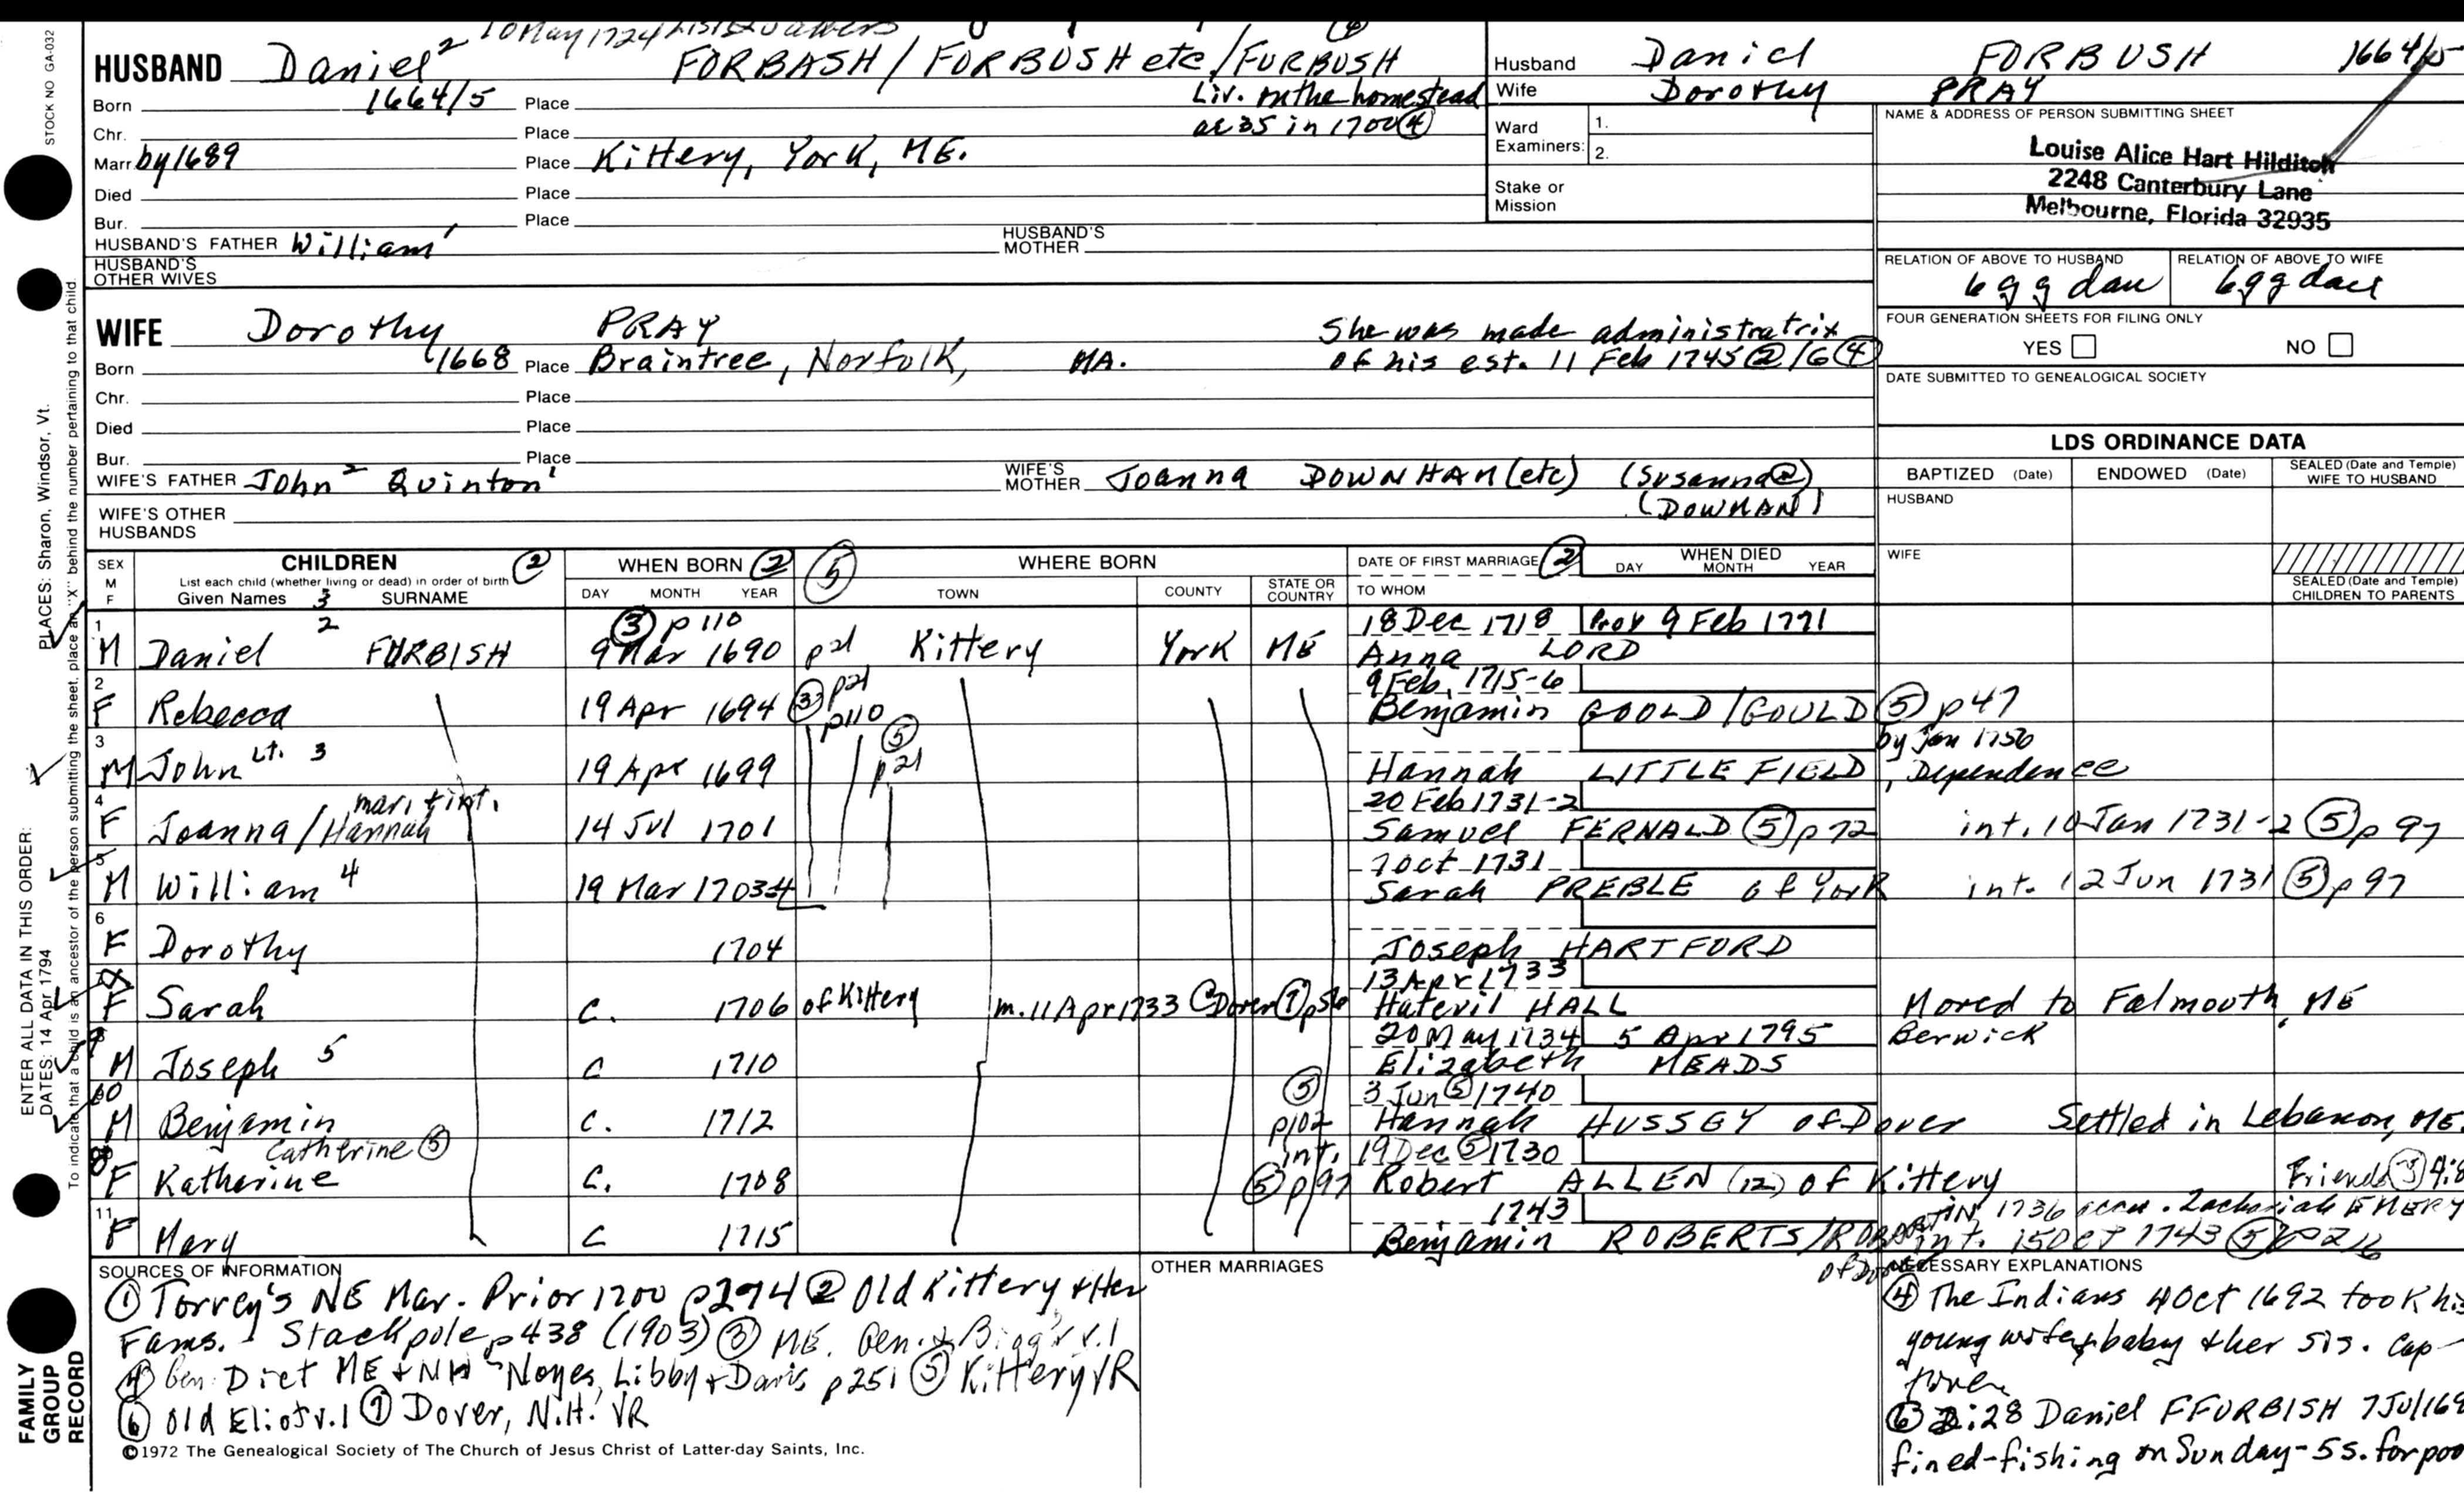 10 May 1724 List Quakers
HUSBAND Daniel 2 FORBASH / FORBUSH etc / FURBUSH
Born 1664/5 Place Liv. on the homestead
Chr. Place ae 35 in 1700 (4)
Marr. by 1689 Place Kittery, York, ME.
Died Place
Bur. Place
HUSBAND'S FATHER William 1 HUSBAND'S MOTHER
HUSBAND'S OTHER WIVES
WIFE Dorothy PRAY She was made administratrix
Born 1668 Place Braintree, Norfolk, MA. of his est. 11 Feb 1745 (2) /6 (4)
Chr. Place
Died Place
Bur. Place
WIFE'S FATHER John 2 Quinton 1 WIFE'S MOTHER Joanna DOWNHAM (etc) (Susanna (2))
(DOWNAN)
WIFE'S OTHER HUSBANDS
Husband Daniel FORBUSH 1664/5
Wife Dorothy PRAY
Ward Examiners: 1.
2.
Stake or Mission
NAME & ADDRESS OF PERSON SUBMITTING SHEET
Louise Alice Hart Hilditch
2248 Canterbury Lane
Melbourne, Florida 32935
RELATION OF ABOVE TO HUSBAND RELATION OF ABOVE TO WIFE
6 g g dau 6 g g dau
FOUR GENERATION SHEETS FOR FILING ONLY
YES NO
DATE SUBMITTED TO GENEALOGICAL SOCIETY
LDS ORDINANCE DATA
BAPTIZED (Date) ENDOWED (Date) SEALED (Date and Temple) WIFE TO HUSBAND
HUSBAND
WIFE
SEALED (Date and Temple) CHILDREN TO PARENTS
SEX M F CHILDREN (2) WHEN BORN (2) (5) WHERE BORN DATE OF FIRST MARRIAGE (2) WHEN DIED
List each child (whether living or dead) in order of birth
Given Names 3 SURNAME DAY MONTH YEAR TOWN COUNTY STATE OR COUNTRY TO WHOM DAY MONTH YEAR
1 2 (3) p 110 18 Dec 1718 Prov 9 Feb 1771
M Daniel FURBISH 9 Mar 1690 p21 Kittery York ME Anna LORD
2 9 Feb. 1715-6
F Rebecca 19 Apr 1694 (3) p21 p110 Benjamin GOOLD / GOULD (5) p47
3 (5) by Jan 1750
M John Lt. 3 19 Apr 1699 p21 Hannah LITTLEFIELD, Dependence
4 mar. & int. 20 Feb 1731-2
F Joanna / Hannah 14 Jul 1701 Samuel FERNALD (5) p 72 int. 10 Jan 1731-2 (5) p 97
5 7 Oct 1731
M William 4 19 Mar 1703-4 Sarah PREBLE of York int. 12 Jun 1731 (5) p 97
6
F Dorothy 1704 Joseph HARTFORD
13 Apr 1733
F Sarah c. 1706 of Kittery m. 11 Apr 1733 @ Dover (7) p56 Hatevil HALL Moved to Falmouth, ME
20 May 1734 5 Apr 1795 Berwick
M Joseph 5 c 1710 Elizabeth MEADS
10 (5) 3 Jun (5) 1740
M Benjamin c. 1712 p102 Hannah HUSSEY of Dover Settled in Lebanon, ME.
Catherine (5) int. 19 Dec (5) 1730
F Katherine c. 1708 (5) p 97 Robert ALLEN (12) of Kittery Friends (3) 4:8
11 1743 1736 Zachariah EMERY
F Mary c 1715 Benjamin ROBERTS / int. 15 Oct 1743 (5)
SOURCES OF INFORMATION
(1) Torrey's NE Mar. Prior 1700 p274 (2) Old Kittery & Her
Fams. - Stackpole p438 (1903) (3) ME. Gen. & Biog'r v.1
(4) Gen. Dict ME & NH Noyes, Libby & Davis p251 (5) Kittery VR
(6) Old Eliot v.1 (7) Dover, N.H. VR
OTHER MARRIAGES
NECESSARY EXPLANATIONS
(4) The Indians 4 Oct 1692 took his
young wife & baby & her sis. cap-
tive
(6) 2:28 Daniel FFURBISH 7 Jul 169
fined-fishing on Sunday-5s. for poo
©1972 The Genealogical Society of The Church of Jesus Christ of Latter-day Saints, Inc.
STOCK NO GA-032
PLACES: Sharon, Windsor, Vt.
ENTER ALL DATA IN THIS ORDER:
DATES: 14 Apr 1794
To indicate that a child is an ancestor of the person submitting the sheet, place an "X" behind the number pertaining to that child.
FAMILY GROUP RECORD